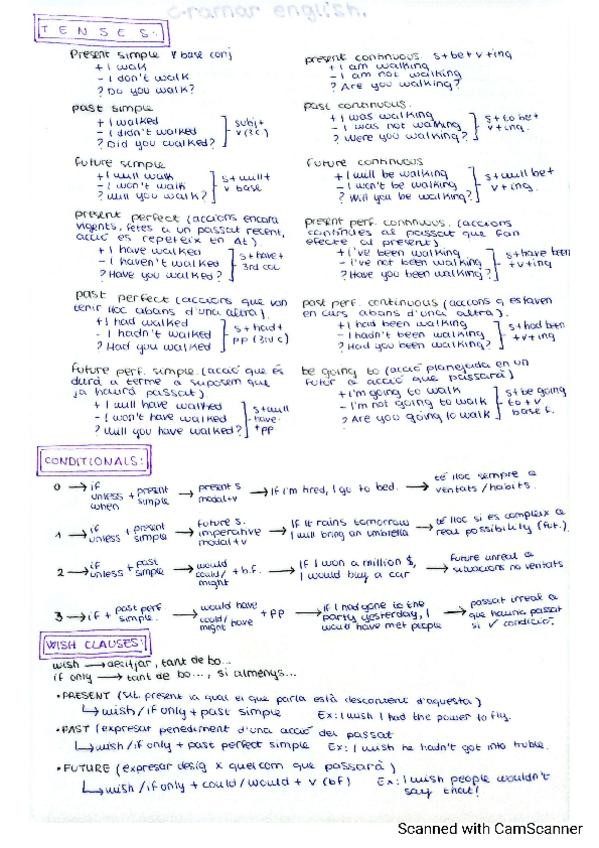 Gramar english.
TENSES:
Present simple v base conj
+ I walk
- I don't walk
? Do you walk?
present continuous s+be+v+ing
+ I am walking
- I am not walking
? Are you walking?
past simple
+ I walked
- I didn't walked
? Did you walked?
subj+
v(3c)
Past continuous.
+ I was walking
- I was not walking
? Were you walking?
s+to be+
v+ing.
Future simple
+ I will walk
- I won't walk
? Will you walk?
s+will+
v base
Future continuous
+ I will be walking
- I won't be walking
? Will you be walking?
s+will be+
v+ing.
present perfect (accions encara
vigents, fetes a un passat recent,
acció es repeteix en Δt)
+ I have walked
- I haven't walked
? Have you walked?
s+have+
3rd col
present perf. continuous. (accions
contínues al passat que fan
efecte al present)
+ I've been walking
- I've not been walking
? Have you been walking?
s+have been
+v+ing
past perfect (accions que van
tenir lloc abans d'una altra).
+ I had walked
- I hadn't walked
? Had you walked
s+had+
pp (3rd c)
past perf. continuous (accions q estaven
en curs abans d'una altra).
+ I had been walking
- I hadn't been walking
? Had you been walking?
s+had been
+v+ing
future perf. simple. (acció que es
durà a terme a suposem que
ja haurà passat).
+ I will have walked
- I won't have walked
? Will you have walked?
s+will
have
+pp
be going to (acció planejada en un
futur o acció que passarà)
+ I'm going to walk
- I'm not going to walk
? Are you going to walk
s+be going
to+v
base f.
CONDITIONALS:
0 → if unless when + present simple → present s modal+v → If I'm tired, I go to bed. → té lloc sempre a veritats/hàbits.
1 → if unless + present simple → future s. imperative modal+v → If it rains tomorrow I will bring an umbrella → té lloc si es compleix a real possibility (fut.).
2 → if unless + past simple → would could/ might + b.f. → If I won a million $, I would buy a car → Future unreal a situacions no veritats
3 → if + past perf simple. → would have could/ might have + pp → if I had gone to the party yesterday, I would have met people → passat irreal a que hauria passat si ✓ condició.
WISH CLAUSES:
wish → desitjar, tant de bo...
if only → tant de bo..., si almenys...
• PRESENT (sit. present la qual el que parla està descontent d'aquesta)
↳ wish/if only + past simple Ex: I wish I had the power to fly.
• PAST (expresar penediment d'una acció del passat
↳ wish/if only + past perfect simple Ex: I wish he hadn't got into truble.
• FUTURE (expresar desig x quelcom que passarà)
↳ wish/if only + could/would + v (bf) Ex: I wish people wouldn't
say that!
Scanned with CamScanner